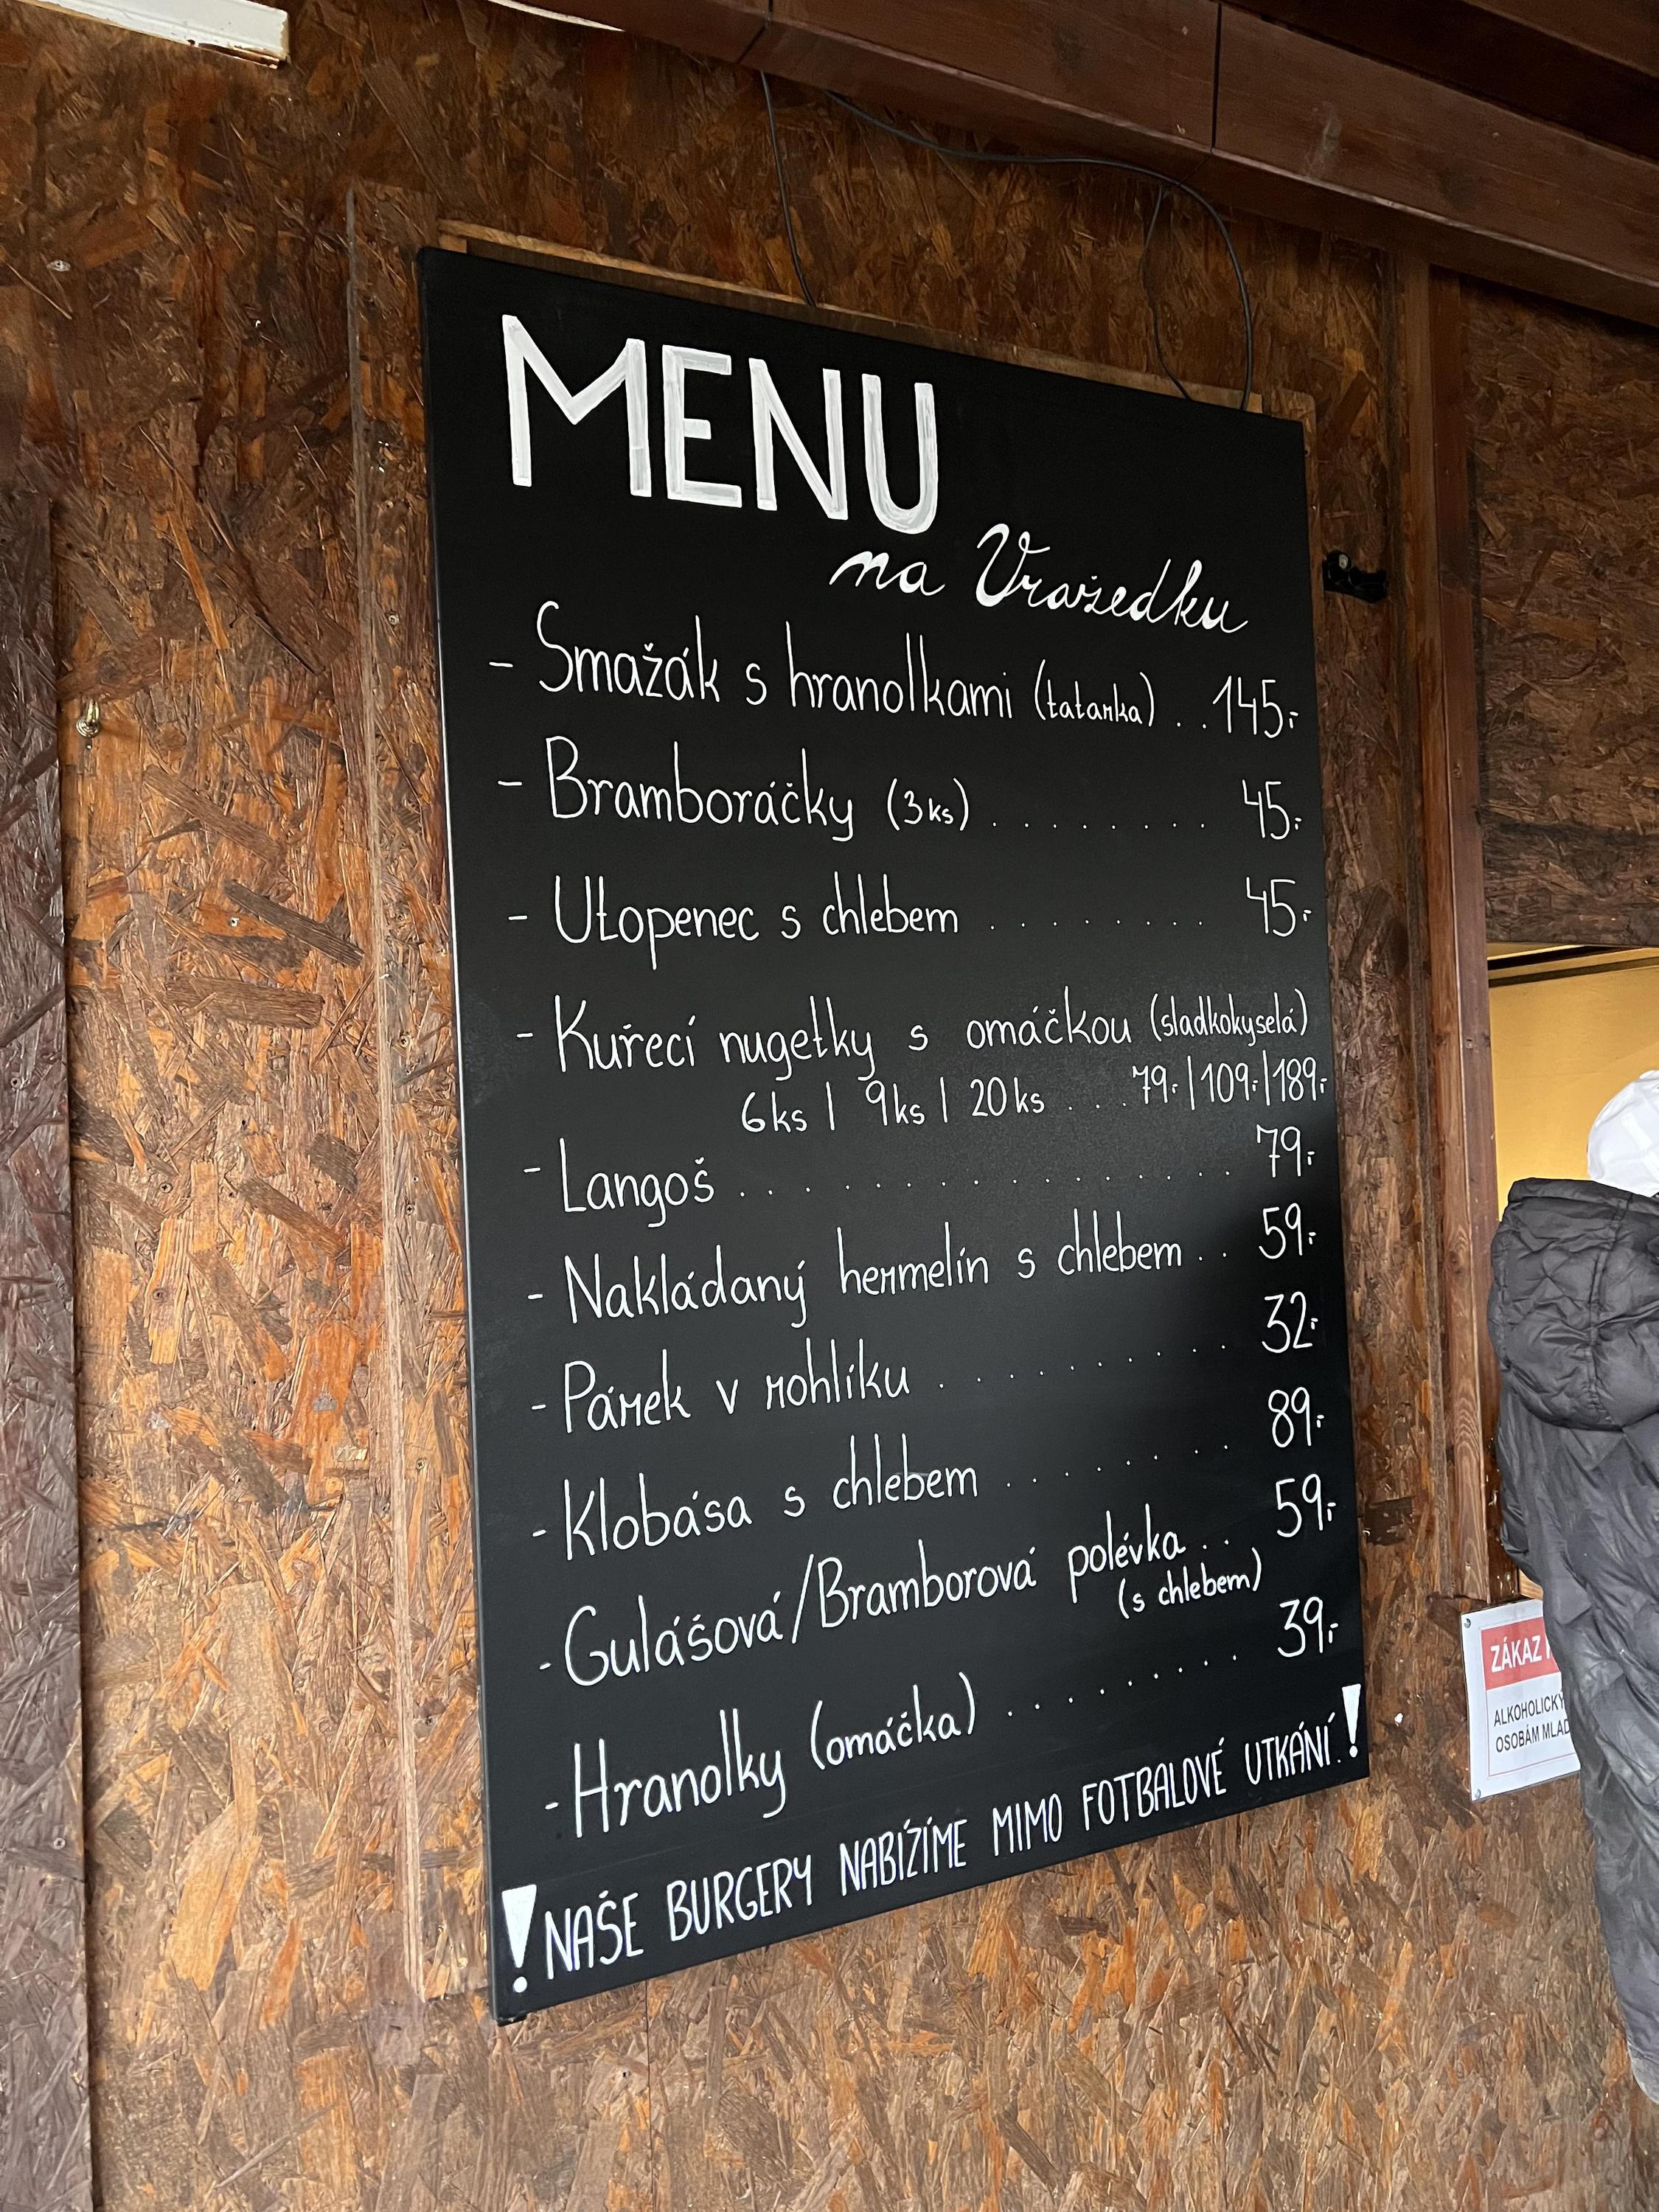 MENU
na Vražedku
- Smažák s hranolkami (tatarka) . . 145,-
- Bramboráčky (3ks) . . . . . . . . 45,-
- Utopenec s chlebem . . . . . . . . 45,-
- Kuřecí nugetky s omáčkou (sladkokyselá)
6ks | 9ks | 20ks . . . 79,-|109,-|189,-
- Langoš . . . . . . . . . . . . . . . . 79,-
- Nakládaný hermelín s chlebem . . 59,-
- Párek v rohlíku . . . . . . . . 32,-
- Klobása s chlebem . . . . . . . . 89,-
- Gulášová/Bramborová polévka . . 59,-
(s chlebem)
- Hranolky (omáčka) . . . . . . . . 39,-
! NAŠE BURGERY NABÍZÍME MIMO FOTBALOVÉ UTKÁNÍ. !
ZÁKAZ
ALKOHOLICKÝ
OSOBÁM MLAD